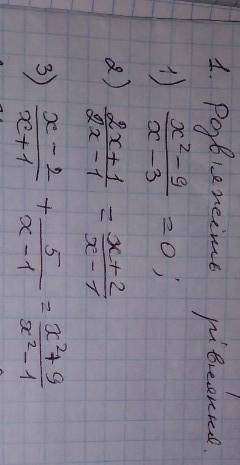 1. Розв'яжіть рівняння.
1) (x² - 9)/(x - 3) = 0;
2) (2x + 1)/(2x - 1) = (x + 2)/(x - 1)
3) (x - 2)/(x + 1) + 5/(x - 1) = (x² + 9)/(x² - 1)